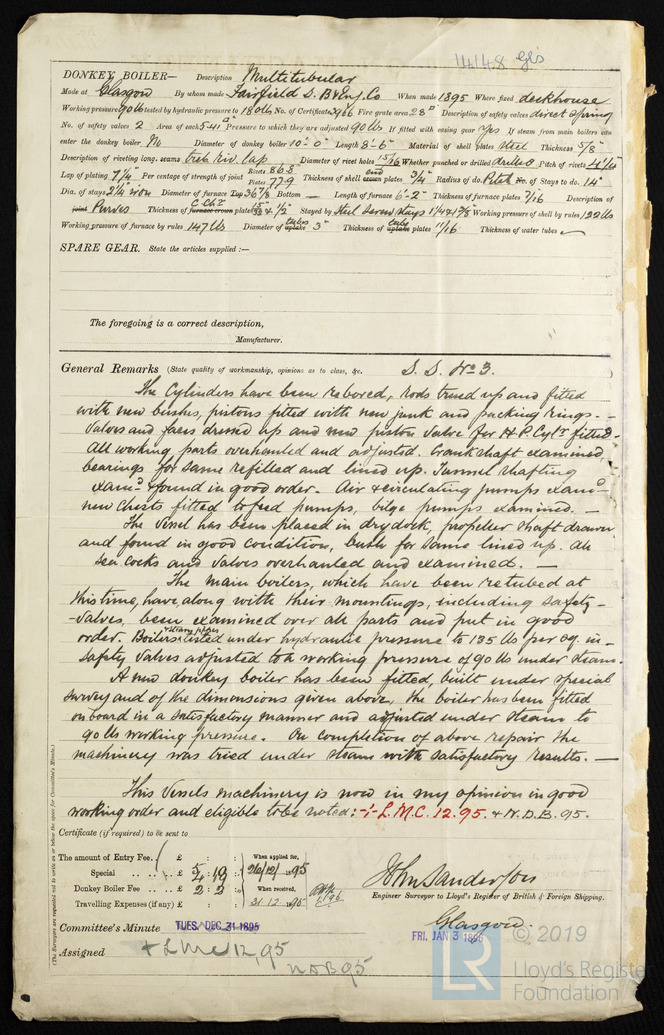 14148 Gls
DONKEY BOILER— Description Multitubular
Made at Glasgow By whom made Fairfield S. B & Eng. Co When made 1895 Where fixed deckhouse
Working pressure 90 lb tested by hydraulic pressure to 180 lb No. of Certificate 3966 Fire grate area 28 □' Description of safety valves direct spring
No. of safety valves 2 Area of each 5.41 □" Pressure to which they are adjusted 90 lb If fitted with easing gear yes If steam from main boilers can
enter the donkey boiler No Diameter of donkey boiler 10'-0" Length 8'-6" Material of shell plates Steel Thickness 5/8"
Description of riveting long. seams treb. riv. lap Diameter of rivet holes 15/16 Whether punched or drilled drilled Pitch of rivets
Lap of plating 7 1/4 Per centage of strength of joint Rivets 86.8 Plates 77.9 Thickness of shell crown end plates 3/4" Radius of do. Pitch No. of Stays to do. 14"
Dia. of stays 2 1/4" iron Diameter of furnace Top 36 7/8 Bottom — Length of furnace 6'-2" Thickness of furnace plates 7/16 Description of
joint Purves Thickness of furnace crown C. Chr plates 15/32 & 1/2 Stayed by Steel screw stays 1 1/4 & 1 3/8 Working pressure of shell by rules 122 lb
Working pressure of furnace by rules 147 lb Diameter of uptake tubes 3" Thickness of uptake tube plates 11/16 Thickness of water tubes
SPARE GEAR. State the articles supplied :—
The foregoing is a correct description,
Manufacturer.
General Remarks (State quality of workmanship, opinions as to class, &c. S. S. No 3.
The Cylinders have been rebored, rods trued up and fitted
with new bushes, pistons fitted with new junk and packing rings. -
Valves and faces dressed up and new piston valve for H.P. Cylr fitted.
All working parts overhauled and adjusted. Crankshaft examined,
bearings for same refilled and lined up. Tunnel shafting
examd & found in good order. Air & circulating pumps examd
new chests fitted to feed pumps, bilge pumps examined. —
The Vessel has been placed in drydock, propeller shaft drawn
and found in good condition, bush for same lined up. All
sea cocks and valves overhauled and examined. —
The main boilers, which have been retubed at
this time, have, along with their mountings, including safety-
-valves, been examined over all parts and put in good
order. Boilers & steam pipes tested under hydraulic pressure to 135 lb per sq. in -
safety valves adjusted to a working pressure of 90 lb under steam.
A new donkey boiler has been fitted, built under special
survey and of the dimensions given above, the boiler has been fitted
onboard in a satisfactory manner and adjusted under steam to
90 lb working pressure. On completion of above repair the
machinery was tried under steam with satisfactory results. —
This Vessels machinery is now in my opinion in good
working order and eligible to be noted: + L.M.C. 12.95. & N.D.B. 95.
Certificate (if required) to be sent to
The amount of Entry Fee . £ : : When applied for,
Special .. .. £ 5 : 18 : 26/12/ 95
Donkey Boiler Fee .. .. £ 2 : 2 : When received,
Travelling Expenses (if any) £ : : 31.12.95
John Sanderson
Engineer Surveyor to Lloyd's Register of British & Foreign Shipping.
Glasgow
Committee's Minute TUES. DEC 31 1895 FRI. JAN 3 1896
Assigned + LMC 12,95
NDB 95
(The Surveyors are requested not to write on or below the space for Committee's Minute.)
LR © 2019
Lloyd's Register
Foundation